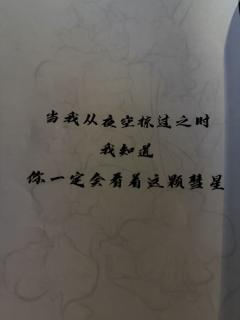 当我从夜空掠过之时
我知道
你一定会看着这颗彗星